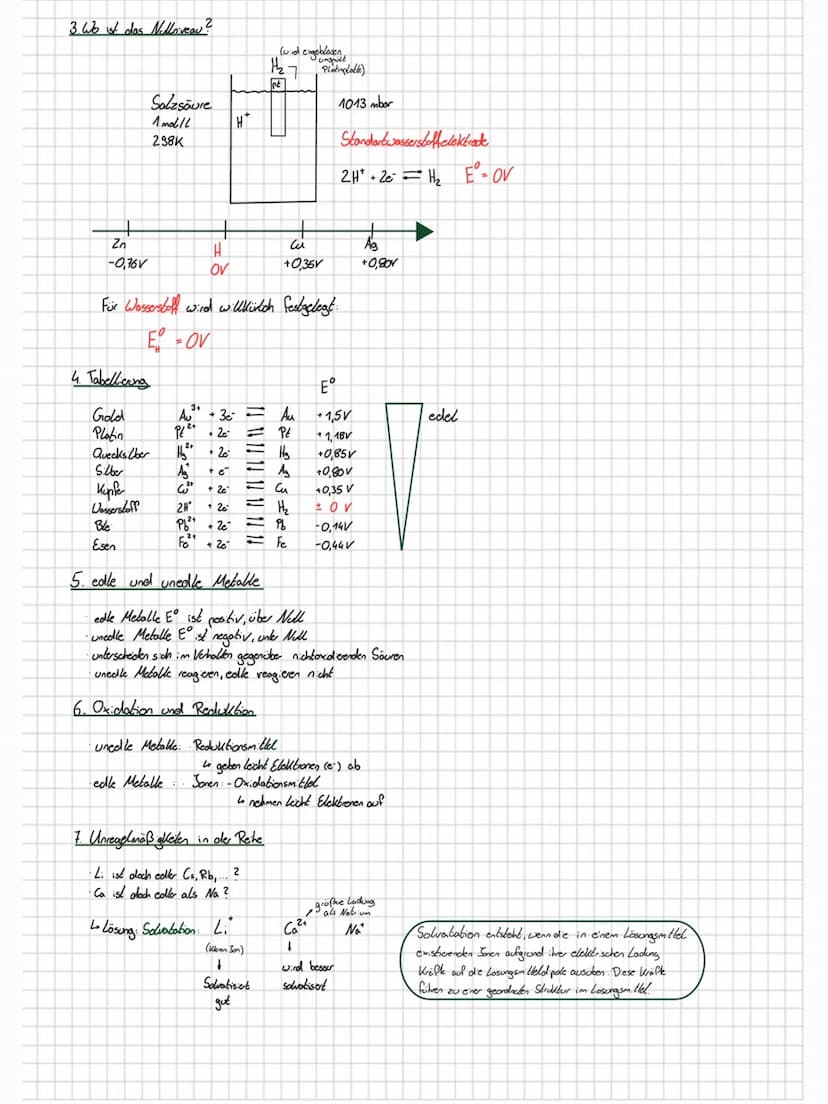 3. Wo ist das Nullniveau?
(wird eingeblasen
umspült
Platinplatte)
H₂
Pt
Salzsäure
1 mol/l
298K
H⁺
1013 mbar
Standartwasserstoffelektrode
2H⁺ + 2e⁻ ⇌ H₂ E⁰ = 0V
Zn H Cu Ag
-0,76V 0V +0,35V +0,80V
Für Wasserstoff wird willkürlich festgelegt:
E⁰H = 0V
4. Tabellierung
E⁰
Gold Au³⁺ + 3e⁻ ⇌ Au +1,5V edel
Platin Pt²⁺ + 2e⁻ ⇌ Pt +1,18V
Quecksilber Hg²⁺ + 2e⁻ ⇌ Hg +0,85V
Silber Ag⁺ + e⁻ ⇌ Ag +0,80V
Kupfer Cu²⁺ + 2e⁻ ⇌ Cu +0,35V
Wasserstoff 2H⁺ + 2e⁻ ⇌ H₂ ± 0 V
Blei Pb²⁺ + 2e⁻ ⇌ Pb -0,14V
Eisen Fe²⁺ + 2e⁻ ⇌ Fe -0,44V
5. edle und unedle Metalle
· edle Metalle E⁰ ist positiv, über Null
· unedle Metalle E⁰ ist negativ, unter Null
· unterscheiden sich im Verhalten gegenüber nichtoxidierenden Säuren
· unedle Metalle reagieren, edle reagieren nicht
6. Oxidation und Reduktion
· unedle Metalle: Reduktionsmittel
↳ geben leicht Elektronen (e⁻) ab
· edle Metalle: Ionen: - Oxidationsmittel
↳ nehmen leicht Elektronen auf
7. Unregelmäßigkeiten in der Reihe
· Li ist doch edler Cs, Rb, ... ?
· Ca ist doch edler als Na?
größere Ladung
als Natrium
↳ Lösung: Solvatation: Li⁺ Ca²⁺ Na⁺
(kleines Ion)
↓ ↓
Solvatisiert
gut
wird besser
solvatisiert
Solvatation entsteht, wenn die in einem Lösungsmittel
existierenden Ionen aufgrund ihrer elektrischen Ladung
Kräfte auf die Lösungsmitteldipole ausüben. Diese Kräfte
führen zu einer geordneten Struktur im Lösungsmittel.